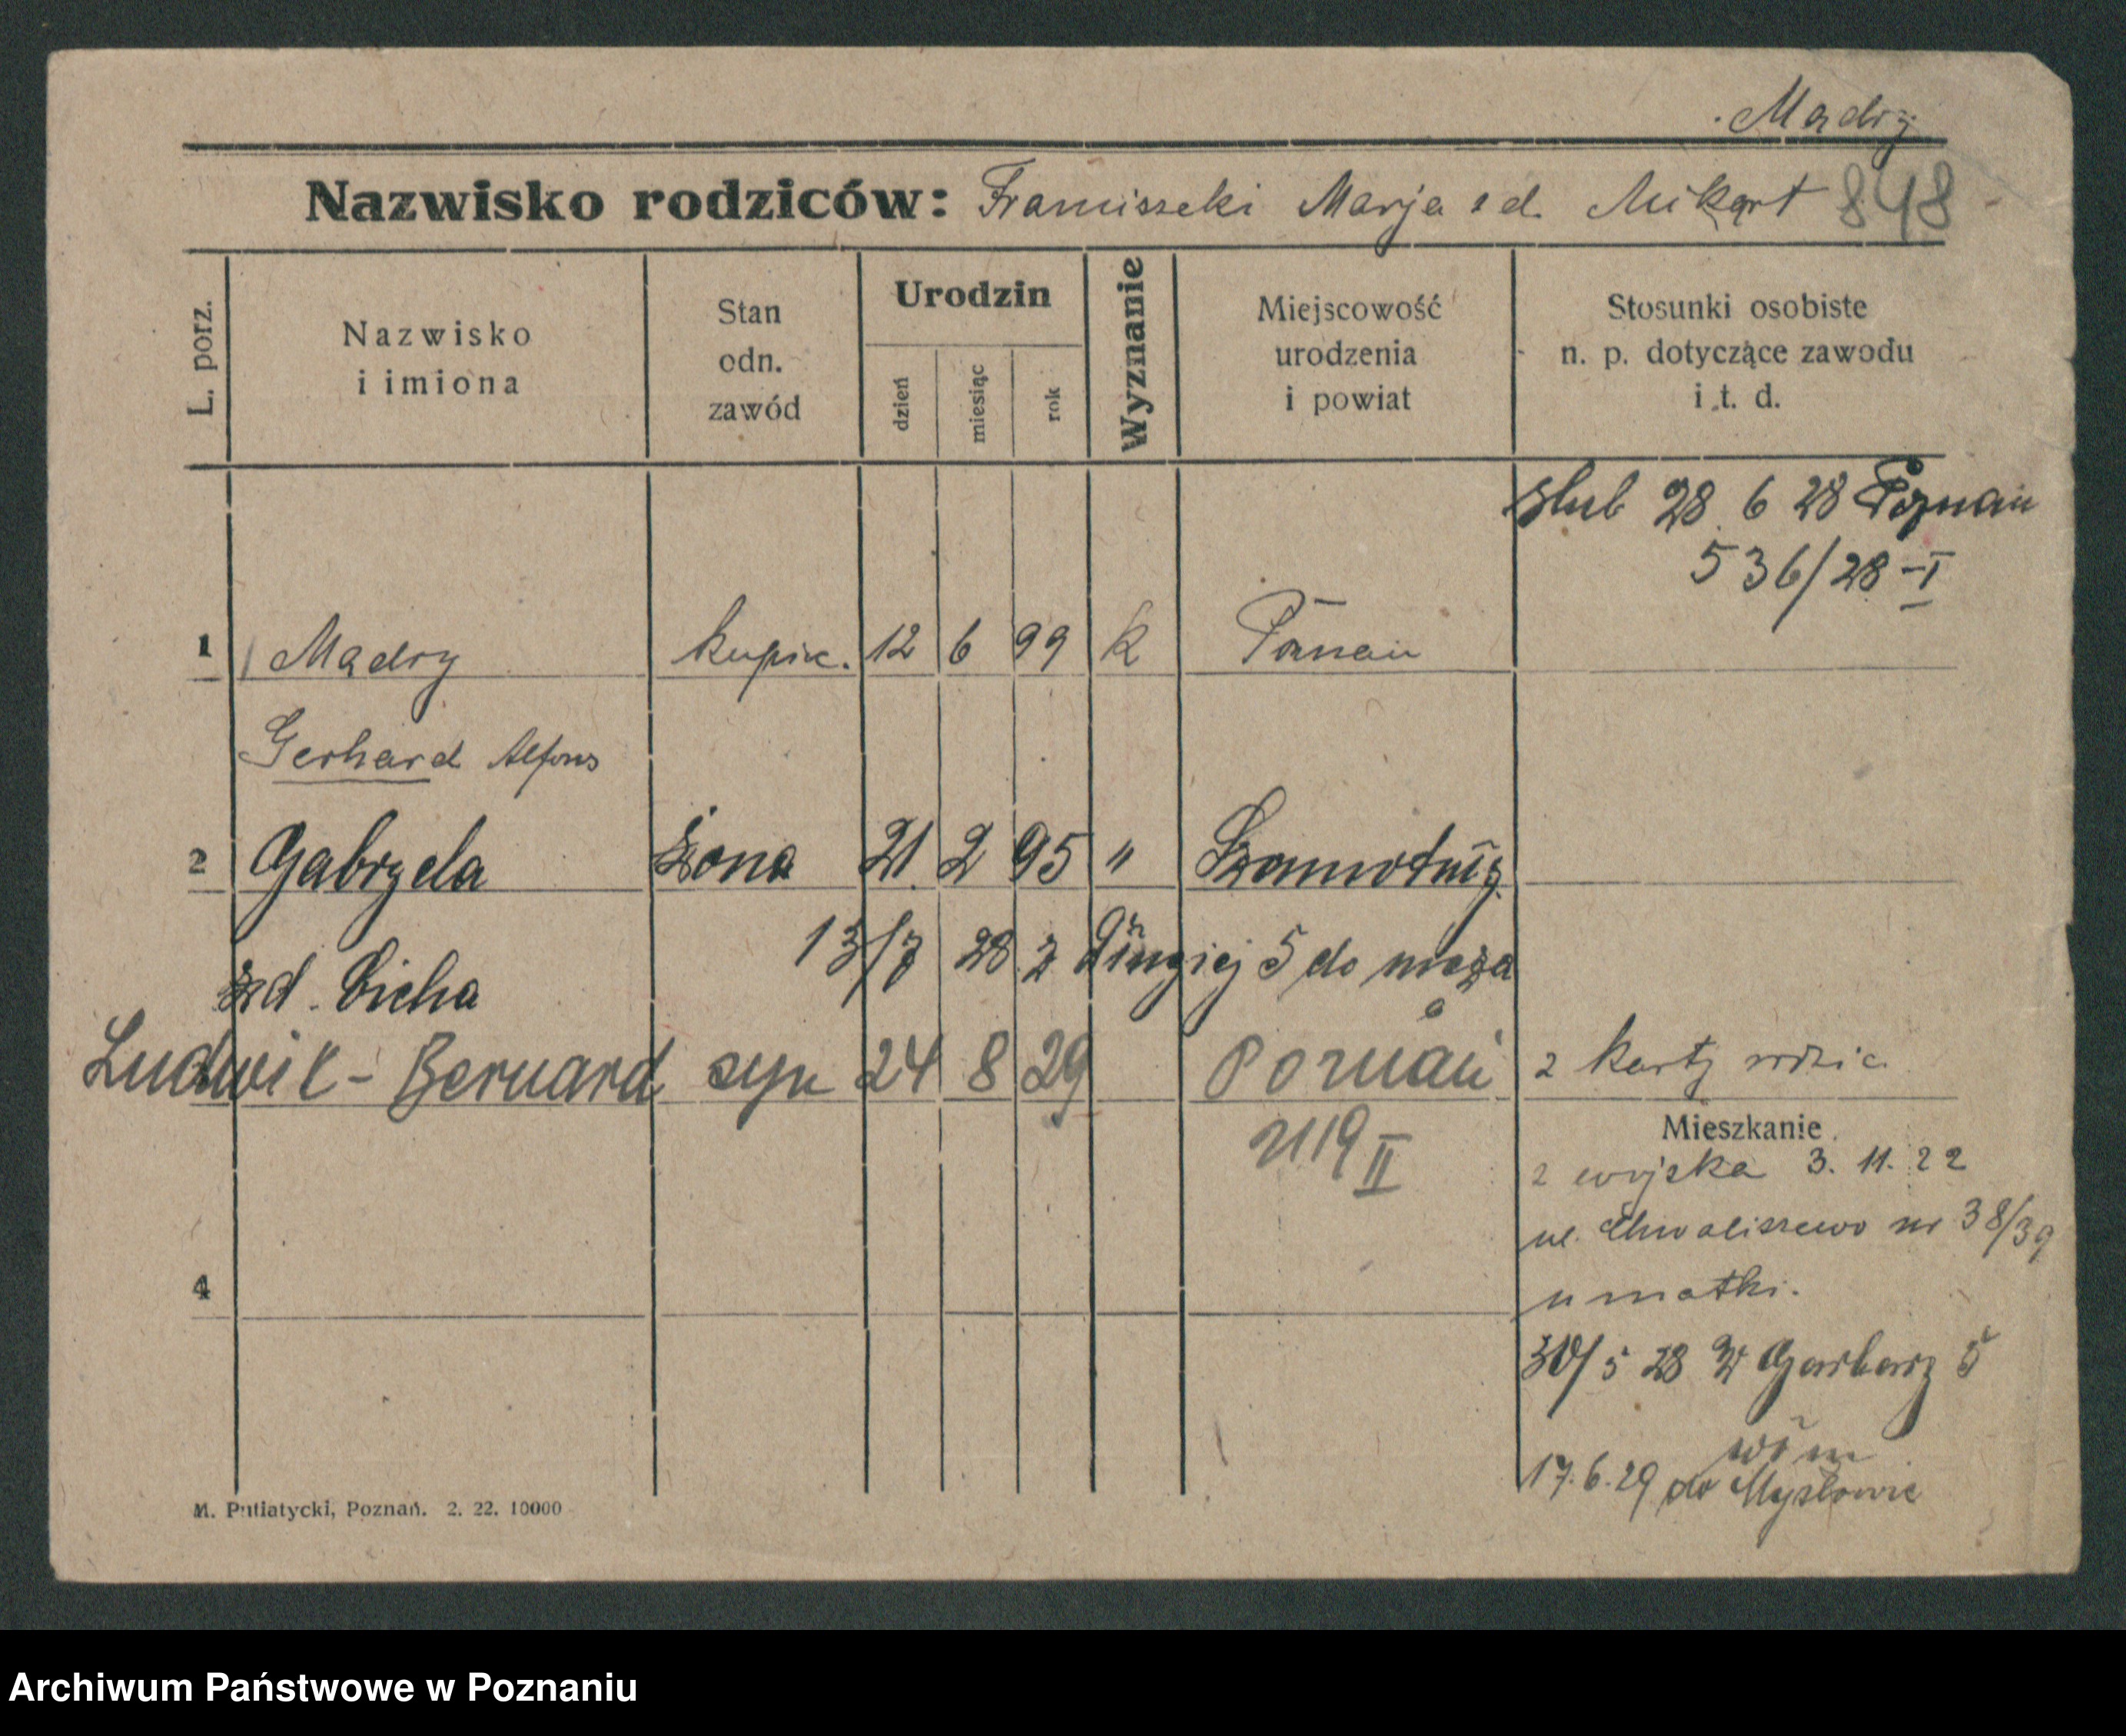 Mądry
Nazwisko rodziców: Franciszek i Marja z d. Mikart 848
L. porz.
Nazwisko
i imiona
Stan
odn.
zawód
Urodzin
dzień
miesiąc
rok
Wyznanie
Miejscowość
urodzenia
i powiat
Stosunki osobiste
n. p. dotyczące zawodu
i t. d.
ślub 28. 6 28 Poznań
536/28 - I
1 Mądry kupiec. 12 6 99 k Poznań
Gerhard Alfons
2 Gabryela żona 21. 2 95 " Szamotuły
zd. Cicha 13/7 28 z Długiej 5 do męża
Ludwik - Bernard syn 24 8 29 Poznań z karty rodzic.
2119 II
Mieszkanie
z wojska 3. 11. 22
ul. Chwaliszewo nr 38/39
u matki.
4
30/5 28 W Garbary 5
17. 6. 29 do Mysłowic
M. Putiatycki, Poznań. 2. 22. 10000
Archiwum Państwowe w Poznaniu